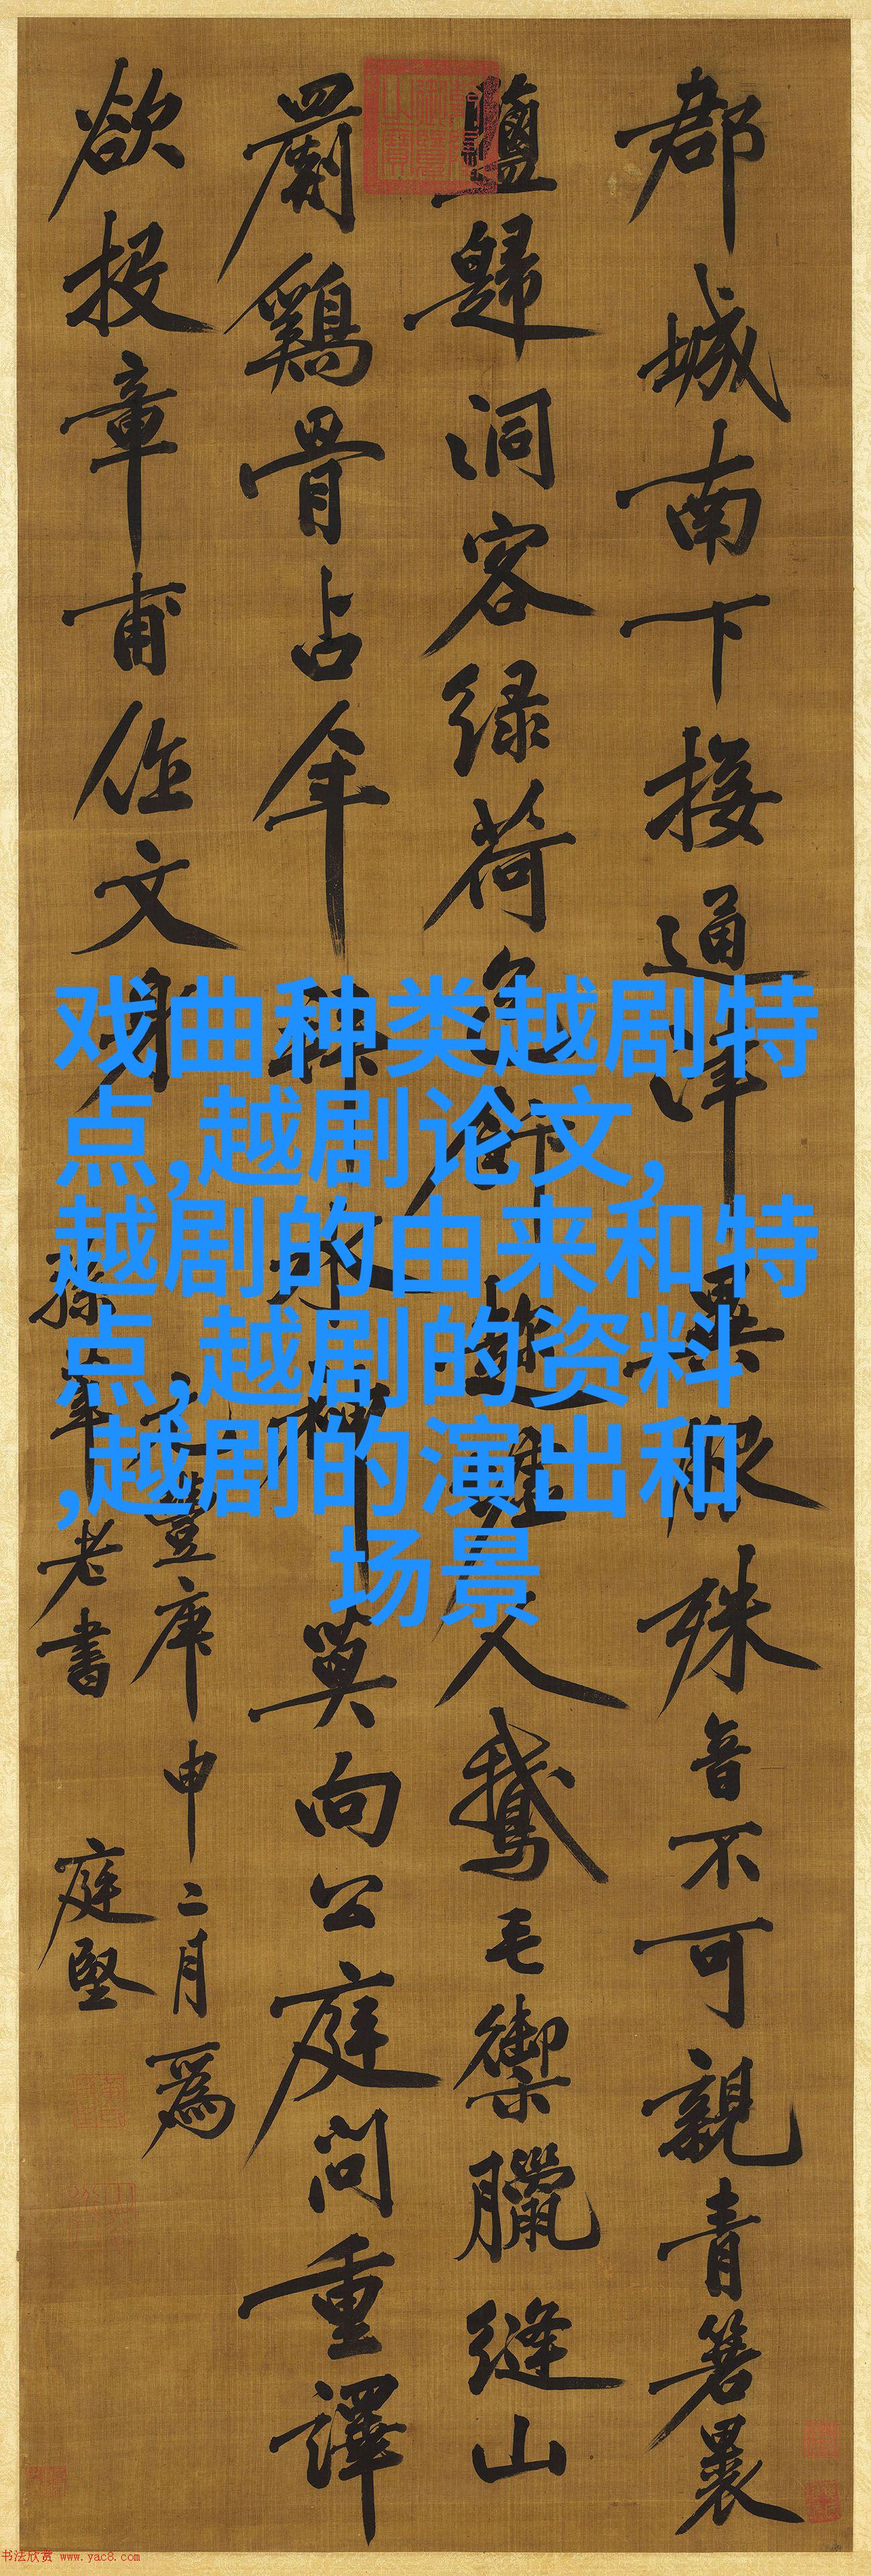 郡城南下接通津異服殊音不可親青箬裹
鹽歸洞客緑荷包飯趁虛人鵝毛御臘縫山
罽鷄骨占年拜水神莫向公庭問重譯
欲投章甫作文身
豐庚申二月爲
孫莘老書 庭堅
戏曲种类越剧特
点,越剧论文,
越剧的由来和特
点,越剧的资料
,越剧的演出和
场景
书法欣赏 www.yac8.com